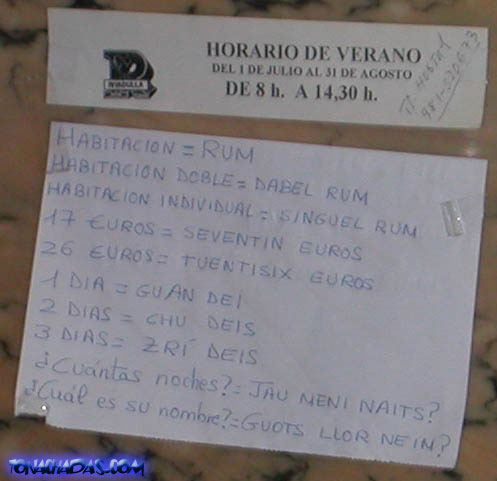 RIVADULLA
HORARIO DE VERANO
DEL 1 DE JULIO AL 31 DE AGOSTO
DE 8 h. A 14,30 h.
HABITACION = RUM
HABITACION DOBLE = DABEL RUM
HABITACION INDIVIDUAL = SINGUEL RUM
17 EUROS = SEVENTIN EUROS
26 EUROS = TUENTISIX EUROS
1 DIA = GUAN DEI
2 DIAS = CHU DEIS
3 DIAS = ZRÍ DEIS
¿Cuántas noches? = JAU MENI NAITS?
¿Cuál es su nombre? = GUOTS LLOR NEIM?
TONAUHADAS.COM